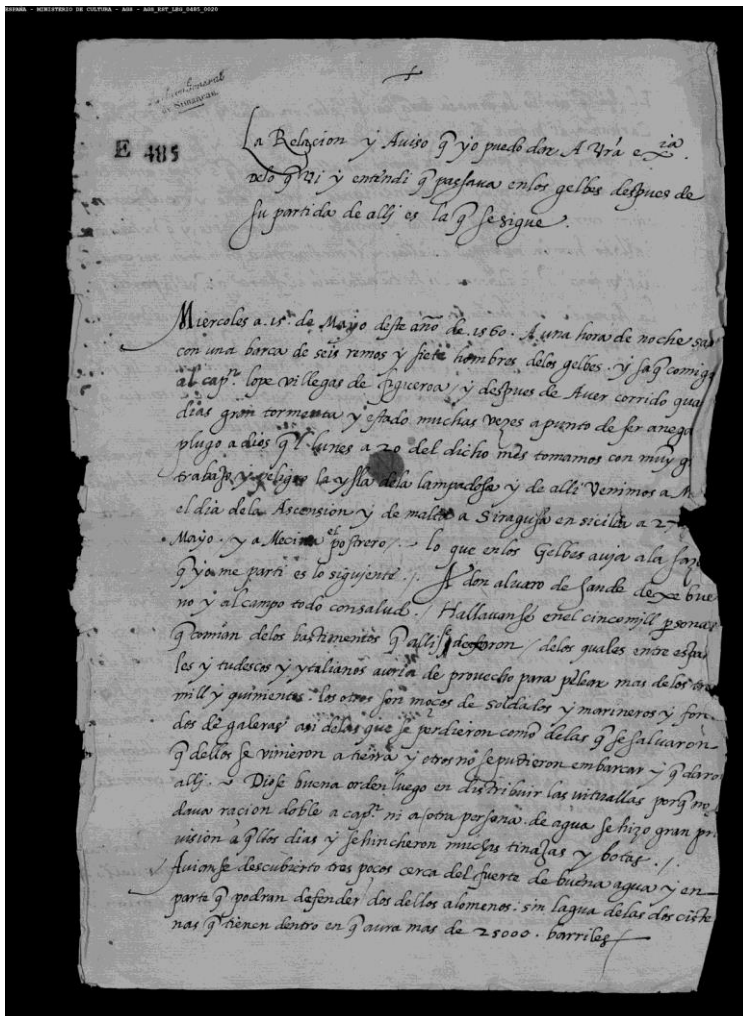 ESPAÑA - MINISTERIO DE CULTURA - AGS - AGS_EST_LEG_0485_0020
Archivo General
de Simancas
E 485
La Relaçion y Auiso q̃ yo puedo dar A Vr̃a exia.
delo q̃ vi y entendi q̃ passaua enlos gelbes despues de
su partida de allj es la q̃ se sigue.
Miercoles a .15. de Mayo deste año de .1560. A una hora de noche sa
con una barca de seis remos y siete hombres delos gelbes. y saq̃ comigo
al capn. lope villegas de figueroa / y despues de Auer corrido qua
dias gran tormenta y estado muchas vezes a punto de ser anega
plugo a dios q̃ l lunes a 20 del dicho mes tomamos con muy g
trabajo y peligro la ysla dela lampadosa y de alli Venimos a M
el dia dela Ascension y de malta a Siragusa en sicilia a 27
Mayo. y a Meçina el postrero / lo que enlos Gelbes auja ala sa
q̃ yo me parti es lo siguiente. / A don aluaro de sande dexe bue
no y al campo todo con salud. / Hallauanse enel cinco mill personas
q̃ comian delos bastimentos q̃ alli se dexaron / delos quales entre espa
les y tudescos y ytalianos auria de prouecho para pelear mas delos tres
mill y quinientos. los otros son moços de soldados y marineros y for
dos de galeras asi delas que se perdieron como delas q̃ se saluaron
q̃ dellos se vinieron a tierra y otros no se pudieron embarcar y q̃daro
allj. Diose buena orden luego en distribuir las vituallas porq̃ no
daua racion doble a capn. ni a otra persona. de agua se hizo gran pr
uision aq̃llos dias y se hincheron muchas tinajas y botas. /.
Auianse descubierto tres poços cerca del fuerte de buena agua y en
parte q̃ podran defender dos dellos alomenos: sin lagua delas dos ciste
nas q̃ tienen dentro en q̃ aura mas de 25000. barriles